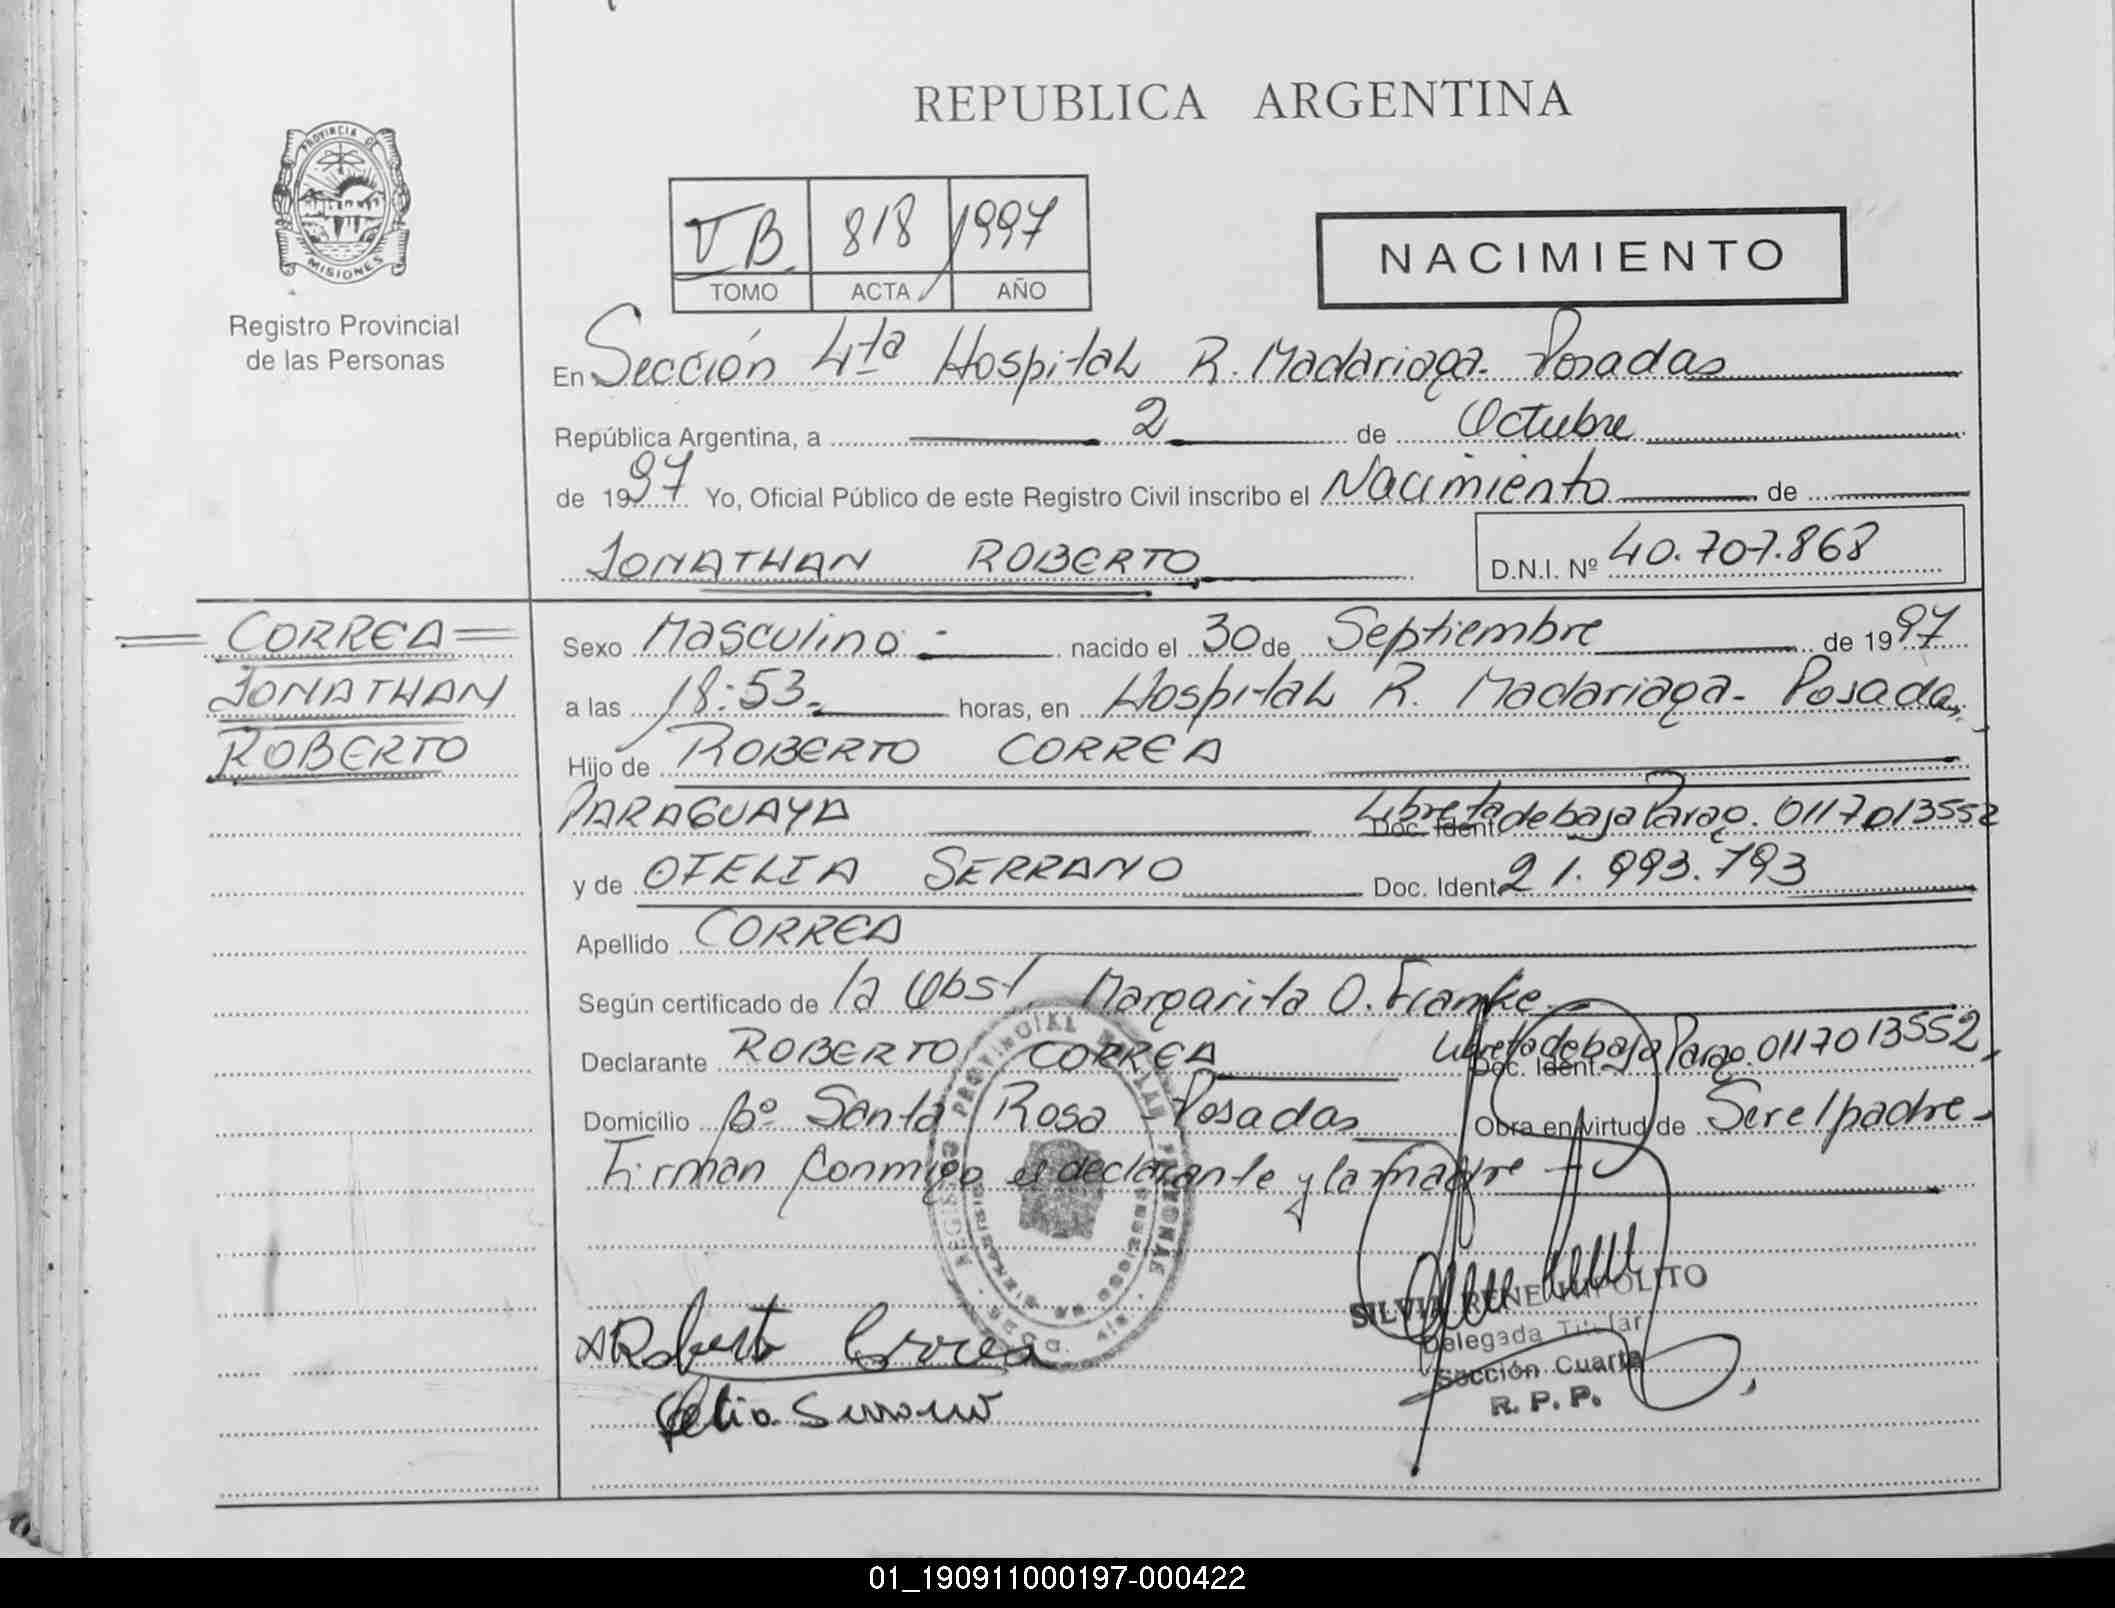 REPUBLICA ARGENTINA
PROVINCIA DE
MISIONES
Registro Provincial
de las Personas
TB 818 1997
TOMO ACTA AÑO
NACIMIENTO
En Sección 4ta Hospital R. Madariaga - Posadas
República Argentina, a 2 de Octubre
de 1997 Yo, Oficial Público de este Registro Civil inscribo el Nacimiento de
JONATHAN ROBERTO D.N.I. Nº 40.707.868
CORREA
JONATHAN
ROBERTO
Sexo Masculino nacido el 30 de Septiembre de 1997
a las 18:53 horas, en Hospital R. Madariaga - Posadas
Hijo de ROBERTO CORREA
PARAGUAYA Doc. Ident. Libreta de baja Parag. 0117013552
y de OFELIA SERRANO Doc. Ident. 21.993.793
Apellido CORREA
Según certificado de la Obst. Margarita O. Franke
Declarante ROBERTO CORREA Doc. Ident. Libreta de baja Parag. 0117013552
Domicilio Bº Santa Rosa Posadas Obra en virtud de Ser el padre
Firman conmigo el declarante y la madre
Roberto Correa
SILVIA RENE HIPOLITO
Delegada Titular
Sección Cuarta
R. P. P.
01_190911000197-000422